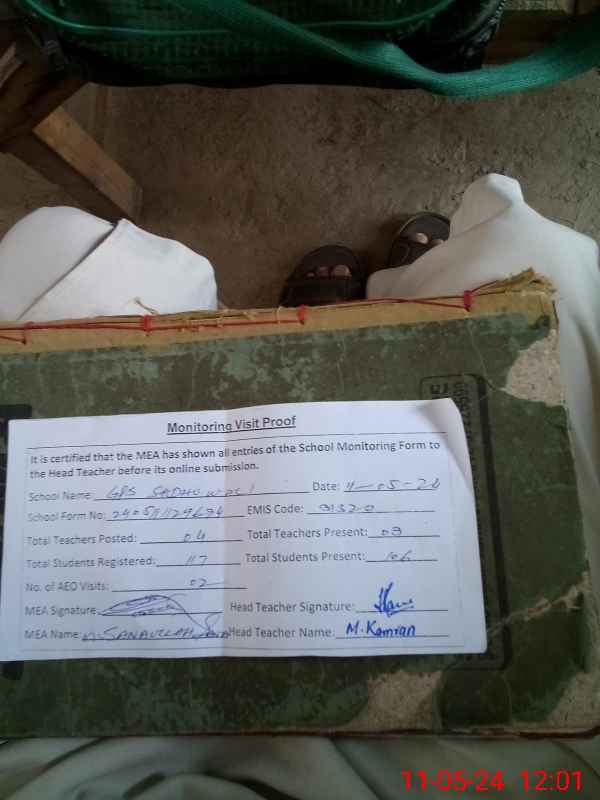 Monitoring Visit Proof
It is certified that the MEA has shown all entries of the School Monitoring Form to
the Head Teacher before its online submission.
School Name: GPS Date: 11-05-24
School Form No: EMIS Code:
Total Teachers Posted: 04 Total Teachers Present: 03
Total Students Registered: 117 Total Students Present: 106
No. of AEO Visits: 02
MEA Signature: Head Teacher Signature:
MEA Name: M. SANAULLAH Head Teacher Name: M. Kamran
11-05-24 12:01